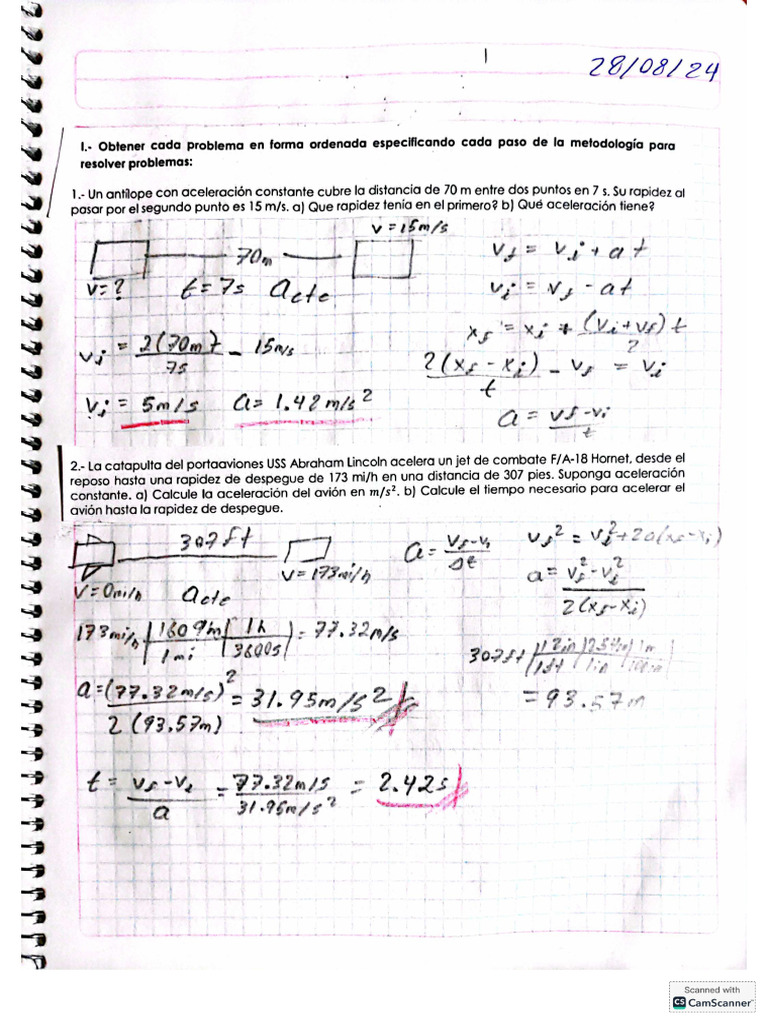 28/08/24
I.- Obtener cada problema en forma ordenada especificando cada paso de la metodología para
resolver problemas:
1.- Un antílope con aceleración constante cubre la distancia de 70 m entre dos puntos en 7 s. Su rapidez al
pasar por el segundo punto es 15 m/s. a) Que rapidez tenía en el primero? b) Qué aceleración tiene?
v = 15m/s
70m
v = ?
t = 7s
a cte
vi = 2(70m)/7s - 15m/s
vi = 5m/s a = 1.42m/s²
vf = vi + at
vi = vf - at
xf = xi + (vi + vf)t/2
2(xf - xi)/t - vf = vi
a = vf - vi/t
2.- La catapulta del portaaviones USS Abraham Lincoln acelera un jet de combate F/A-18 Hornet, desde el
reposo hasta una rapidez de despegue de 173 mi/h en una distancia de 307 pies. Suponga aceleración
constante. a) Calcule la aceleración del avión en m/s². b) Calcule el tiempo necesario para acelerar el
avión hasta la rapidez de despegue.
307ft
v = 0mi/h
a cte
v = 173mi/h
a = vf - vi/Δt
vf² = vi² + 2a(xf - xi)
a = vf² - vi²/2(xf - xi)
173mi/h | 1609m/1mi | 1h/3600s | = 77.32m/s
307ft | 12in/1ft | 2.54cm/1in | 1m/100cm |
= 93.57m
a = (77.32m/s)²/2(93.57m) = 31.95m/s²
t = vf - vi/a = 77.32m/s/31.95m/s² = 2.42s
Scanned with
CS CamScanner